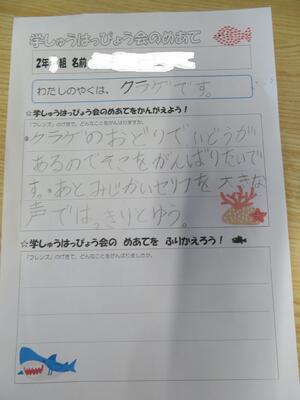 学しゅうはっぴょう会のめあて
2年 組 名前
わたしのやくは、クラゲです。
☆学しゅうはっぴょう会のめあてをかんがえよう!
「フレンズ」のげきで、どんなことをがんばりますか。
クラゲのおどりでいどうが
あるのでそこをがんばりたいで
す。あとみじかいセリフを大きな
声ではっきりとゆう。
☆学しゅうはっぴょう会の めあてを ふりかえろう!
「フレンズ」のげきで、どんなことをがんばりましたか。